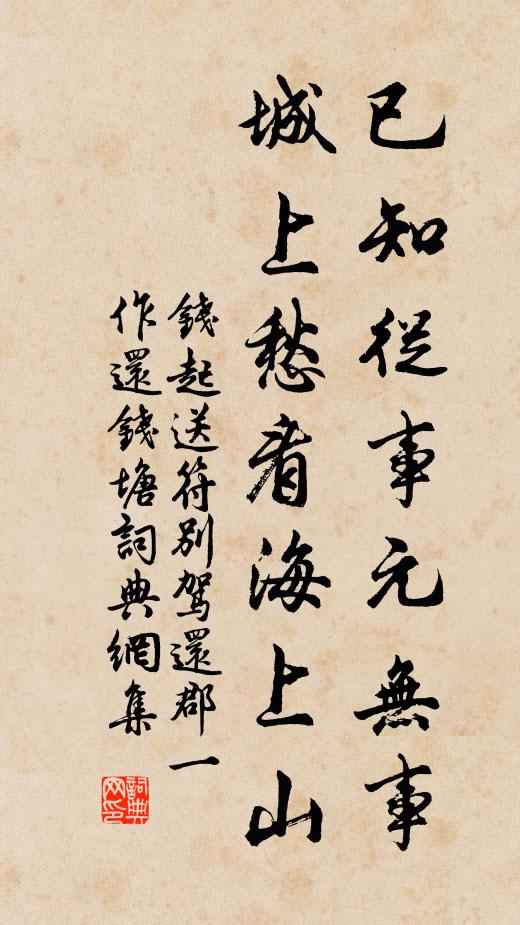 已知從事元無事
城上愁看海上山
錢起送符別駕還郡一
作還錢塘詞典網集
詞典网印